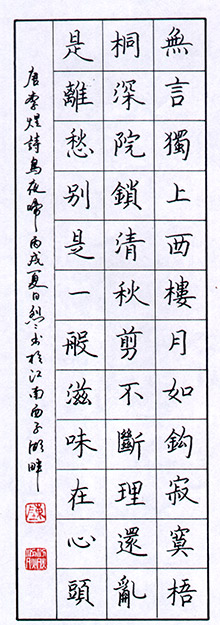 無言獨上西樓月如鈎寂寞梧
桐深院鎖清秋剪不斷理還亂
是離愁别是一般滋味在心頭
唐李煜詩烏夜啼丙戌夏日烈烈書於江南西子湖畔